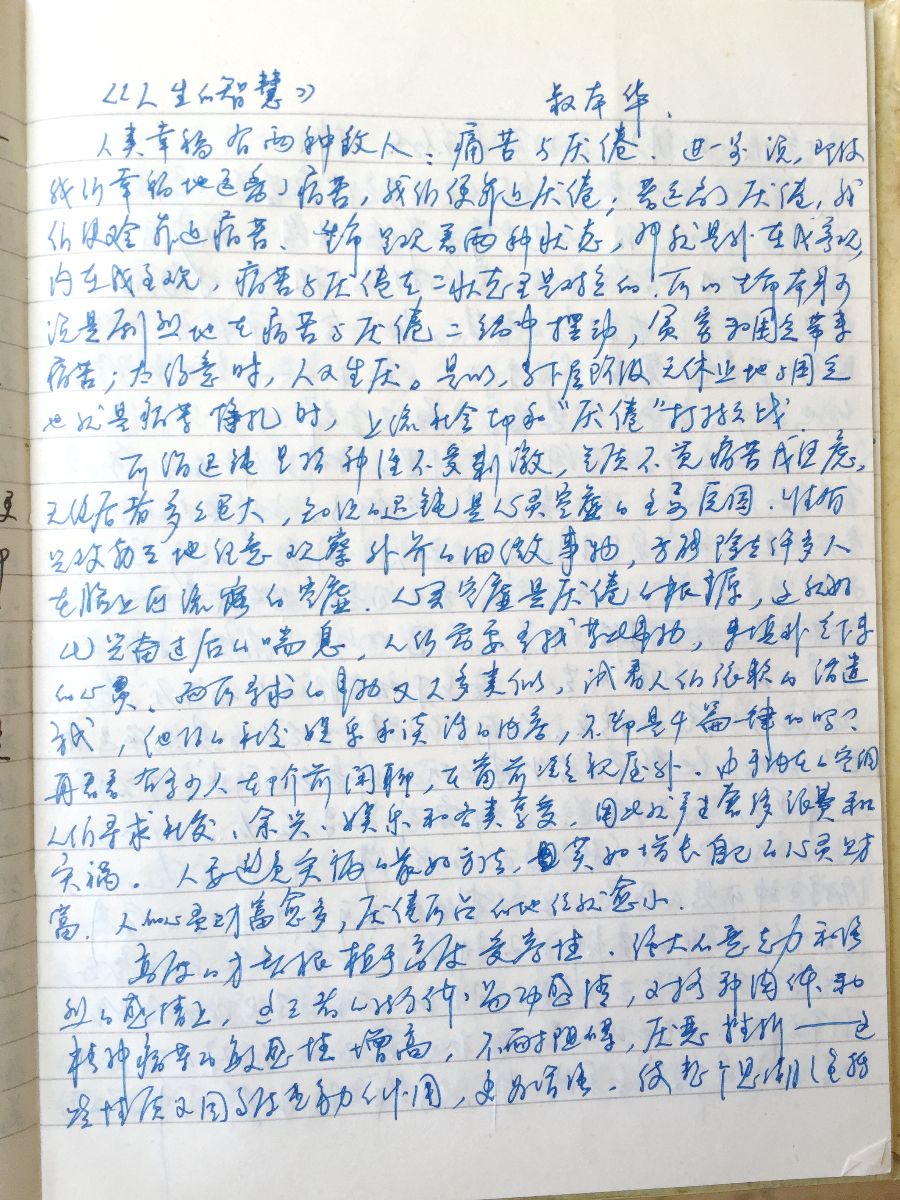 《人生的智慧》 叔本华.
人类幸福有两种敌人：痛苦与厌倦.进一步说,即使
我们幸福地远离了痛苦,我们便靠近厌倦；若远离了厌倦,我
们便会靠近痛苦.生命呈现着两种状态,那就是外在或客观,
内在或主观,痛苦与厌倦在二状态里是对立的.所以生命本身可
说是剧烈地在痛苦与厌倦二端中摆动,贫穷和困乏带来
痛苦；太得意时,人又生厌。是以,当下层阶级无休止地与困乏
也就是痛苦挣扎时,上流社会却和“厌倦”打持久战.
所谓迟钝是指种种不受刺激,气质不觉痛苦或焦虑,
无使后者多么巨大,知识的迟钝是心灵空虚的主要原因.惟有
兴致勃勃地注意观察外界的细微事物,方能除去许多人
在脸上所流露的空虚.心灵空虚是厌倦的根源,这就如
兴奋过后的喘息,人们需要寻找某些事物,来填补空下来
的心灵.而所寻求的事物又大多类似,试看人们依赖的消遣
方式,他们的社交娱乐和谈话的内容,不都是千篇一律的吗？
再看看有多少人在阶前闲聊,在窗前凝视屋外.由于内在的空洞
人们寻求社交、余兴、娱乐和各类享受,因此就产生奢侈浪费和
灾祸。人要避免灾祸的最好方法,莫如增长自己的心灵财
富.人的心灵财富愈多,厌倦所占的地位就愈小.
高度的才智根植于高度受容性、强大的意志力和强
烈的感情上,这三者的结合体,易动感情,对各种肉体和
精神痛苦的敏感性增高,不耐阻碍,厌恶挫折——这
些性质又因高度想象力的作用,更为增强.使整个思潮(包括